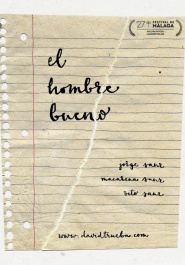 27 FESTIVAL DE
MÁLAGA
el
hombre
bueno
jorge sanz
macarena sanz
vito sanz
www.davidtrueba.com